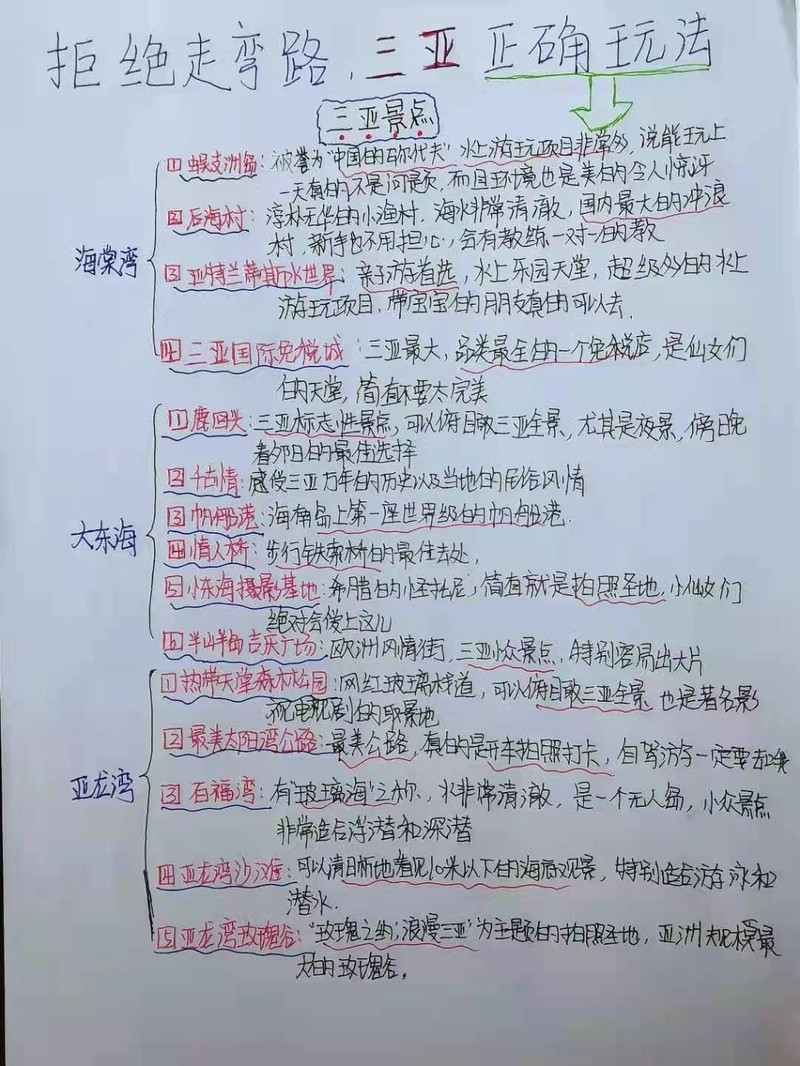 拒绝走弯路，三亚正确玩法
三亚景点
海棠湾
①蜈支洲岛：被誉为“中国的马尔代夫”水上游玩项目非常多，说能玩上
一天真的不是问题，而且环境也是美的令人惊讶
②后海村：淳朴无华的小渔村，海水非常清澈，国内最大的冲浪
村，新手也不用担心，会有教练一对一的教
③亚特兰蒂斯水世界：亲子游首选，水上乐园天堂，超级多的水上
游玩项目，带宝宝的朋友真的可以去.
④三亚国际免税城：三亚最大，品类最全的一个免税店，是仙女们
的天堂，简直不要太完美
大东海
①鹿回头：三亚标志性景点，可以俯瞰三亚全景，尤其是夜景，傍晚
看夕阳的最佳选择
②千古情：感受三亚万年的历史以及当地的民俗风情
③帆船港：海南岛上第一座世界级的帆船港.
④情人桥：步行铁索桥的最佳去处，
⑤小东海摄影基地：希腊的怪私尼，简直就是拍照圣地，小仙女们
绝对会爱上这儿
半山半岛吉庆广场：欧洲风情街，三亚小众景点，特别容易出大片
亚龙湾
①热带天堂森林公园：网红玻璃栈道，可以俯瞰三亚全景，也是著名影
视电视剧的取景地
②最美太阳湾公路：最美公路，真的是开车拍照打卡，自驾游一定要去
③石福湾：有“玻璃海”之称，水非常清澈，是一个无人岛，小众景点
非常适合浮潜和深潜
④亚龙湾沙滩：可以清晰地看见10米以下的海底观景，特别适合游泳和
潜水.
⑤亚龙湾玫瑰谷：“玫瑰之约，浪漫三亚”为主题的拍照圣地，亚洲规模最
大的玫瑰谷。